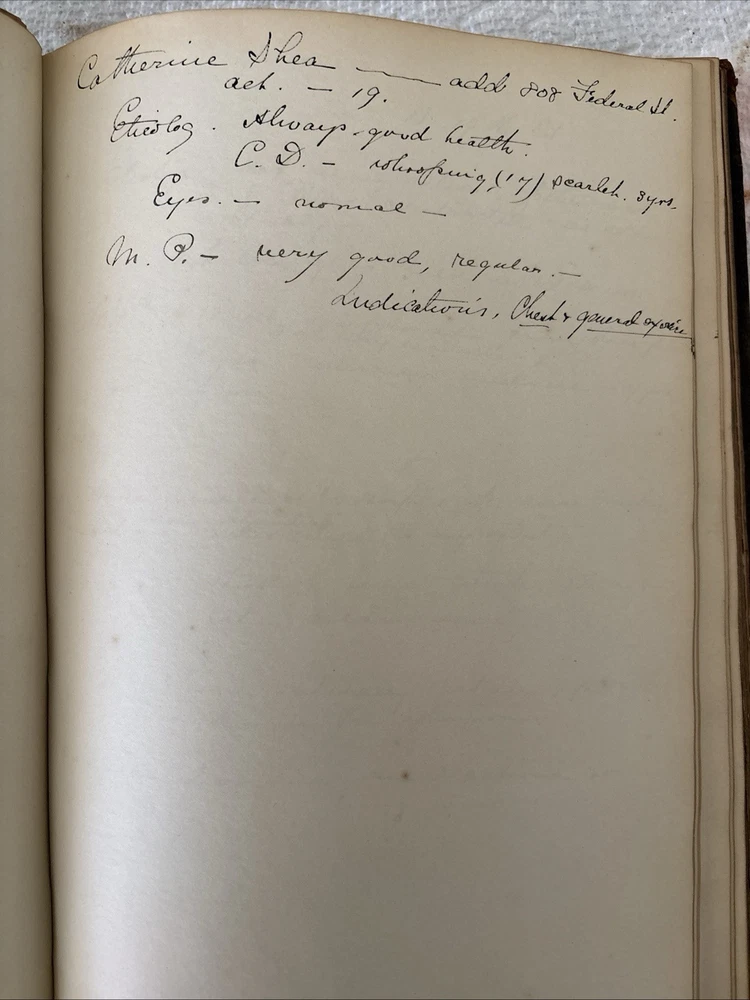 Catherine Shea — add 808 Federal St.
aet. — 19.
Etiolog. Always good health.
C. D. — whooping (17) scarlet. 3yrs.
Eyes. — normal —
M. P. — very good, regular. —
Indications, Chest & general